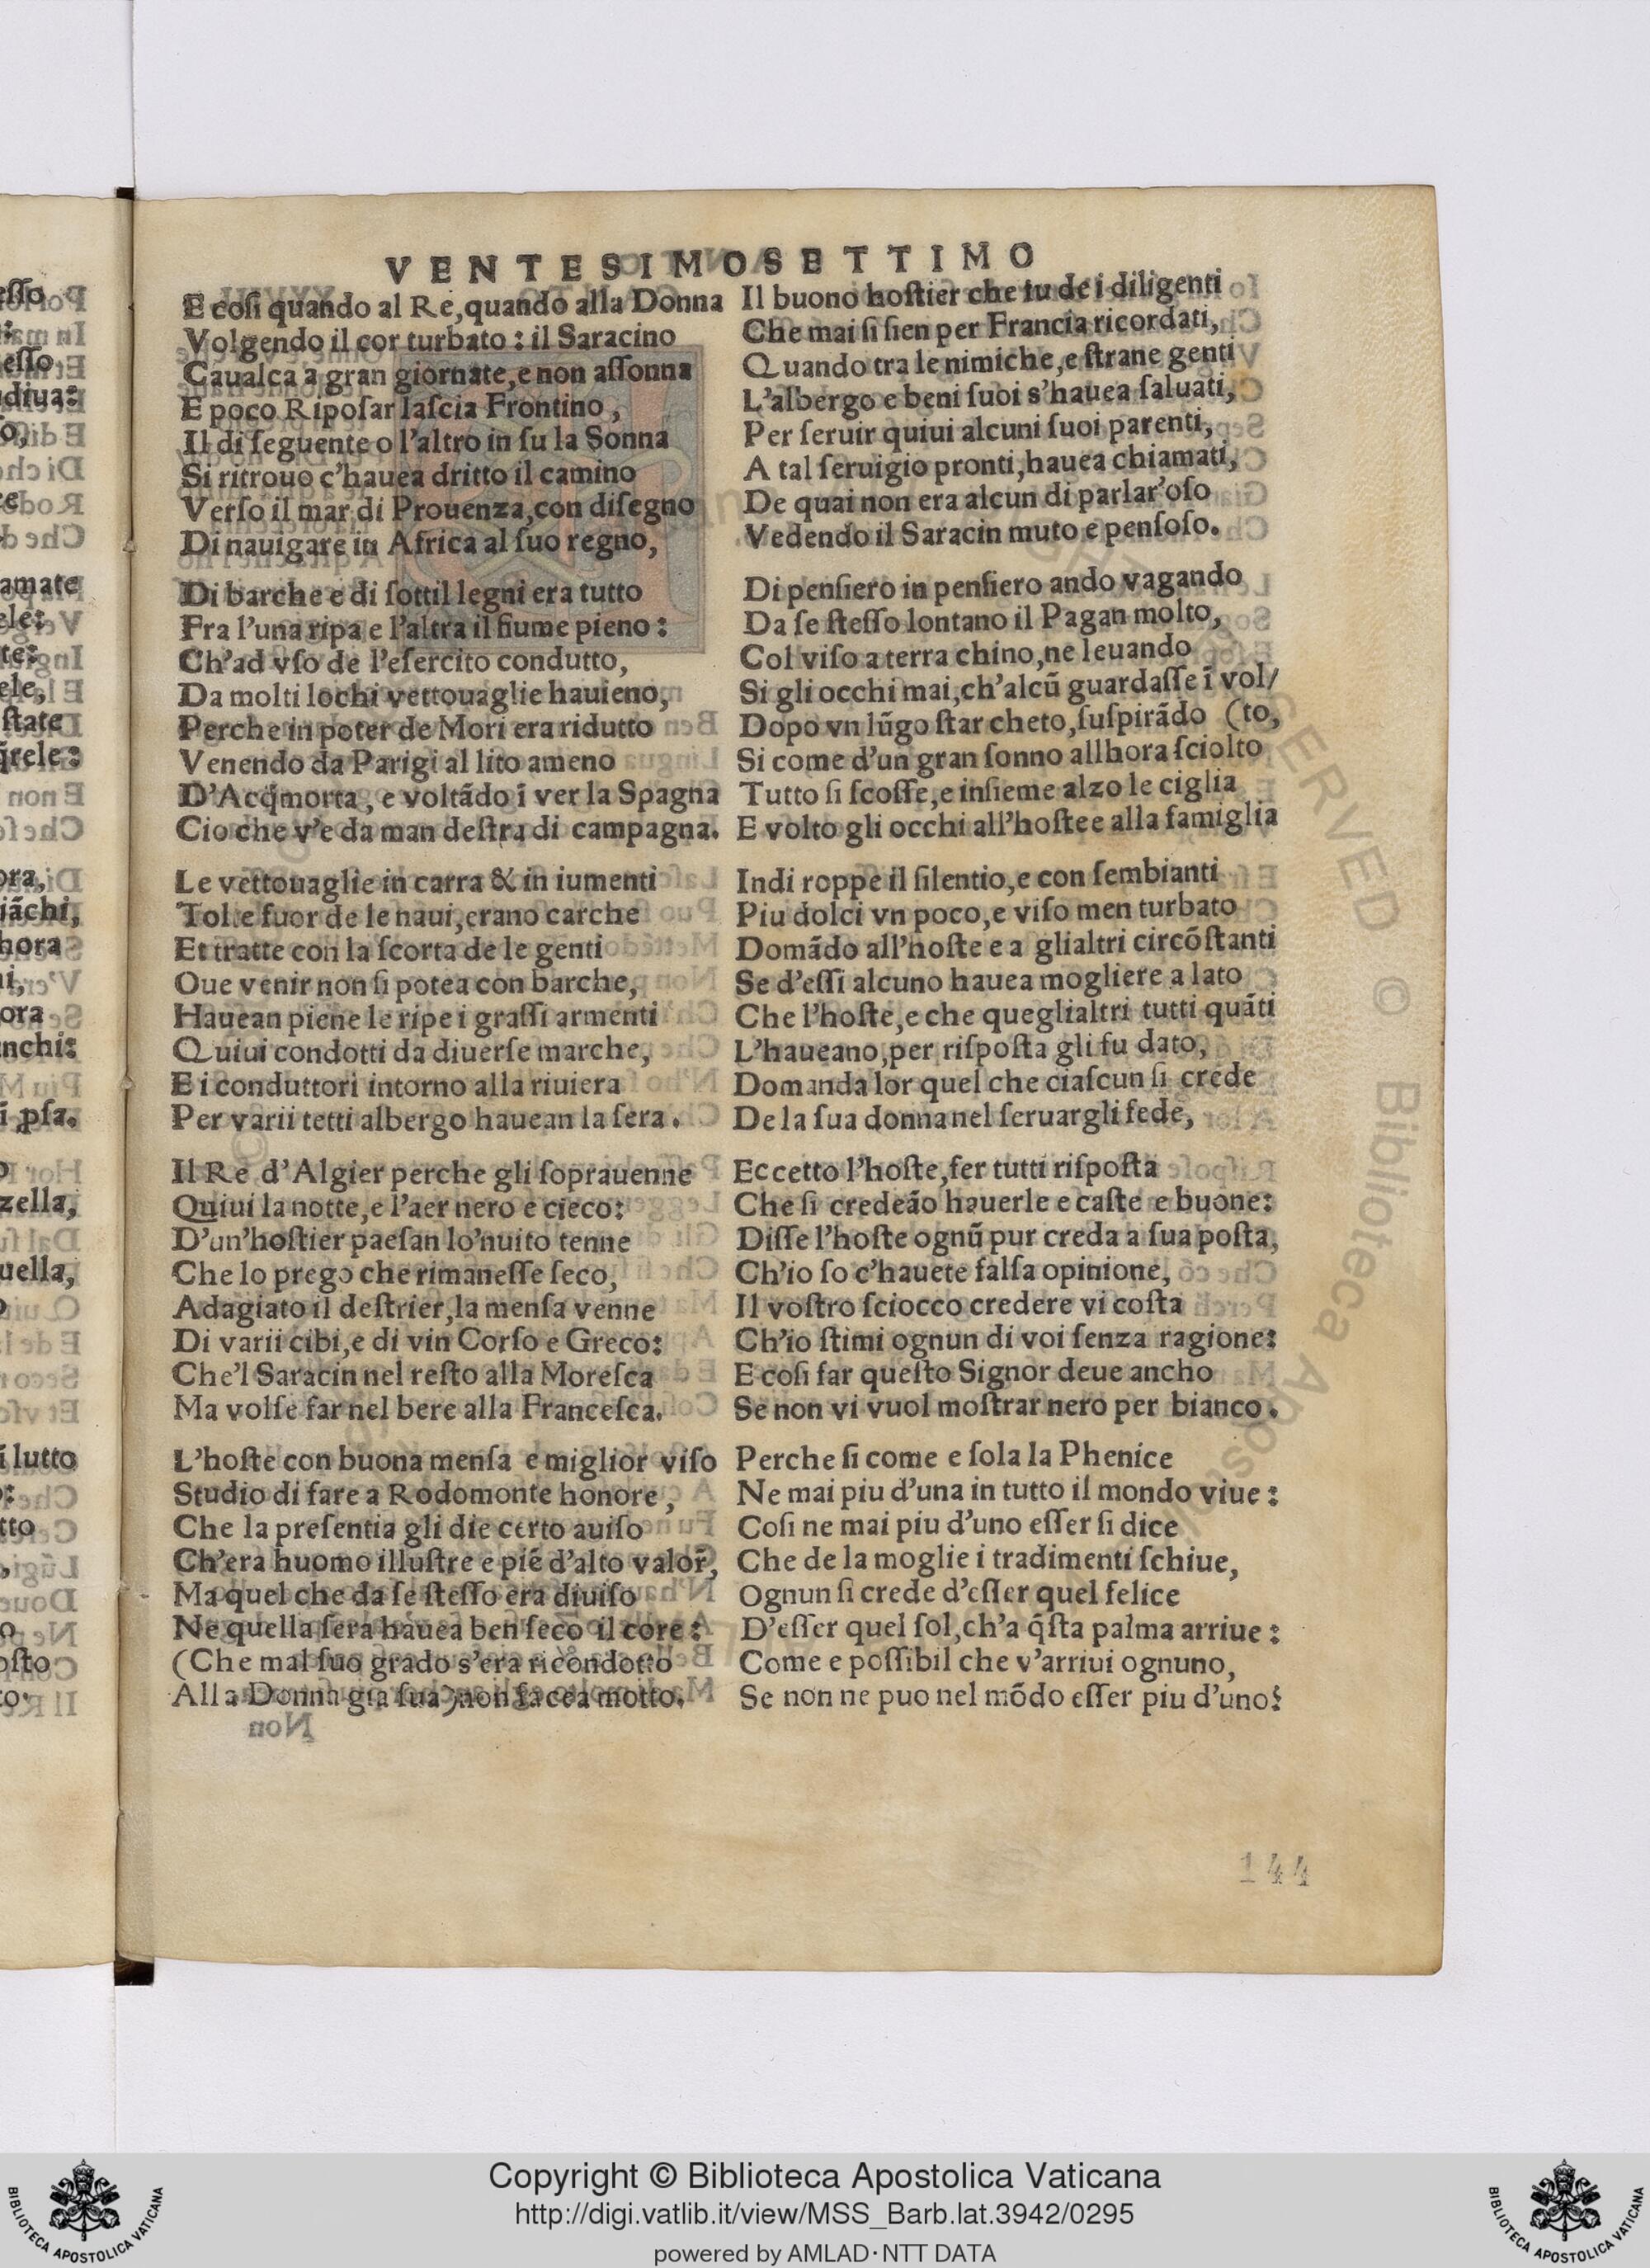 VENTESIMOSETTIMO
E coſi quando al Re, quando alla Donna
Volgendo il cor turbato : il Saracino
Caualca a gran giornate, e non aſſonna
E poco Ripoſar laſcia Frontino ,
Il di ſeguente o l'altro in ſu la Sonna
Si ritrouo c'hauea dritto il camino
Verſo il mar di Prouenza, con diſegno
Di nauigare in Africa al ſuo regno,
Di barche e di ſottil legni era tutto
Fra l'una ripa e l'altra il fiume pieno :
Ch'ad vſo de l'eſercito condutto,
Da molti lochi vettouaglie hauieno,
Perche in poter de Mori era ridutto
Venendo da Parigi al lito ameno
D'Acq̃morta , e voltãdo ĩ ver la Spagna
Cio che v'e da man deſtra di campagna.
Le vettouaglie in carra & in iumenti
Tolte fuor de le naui, erano carche
Et tratte con la ſcorta de le genti
Oue venir non ſi potea con barche,
Hauean piene le ripe i graſſi armenti
Quiui condotti da diuerſe marche,
E i conduttori intorno alla riuiera
Per varii tetti albergo hauean la ſera .
Il Re d'Algier perche gli ſoprauenne
Quiui la notte, e l'aer nero e cieco:
D'un'hoſtier paeſan lo'nuito tenne
Che lo prego che rimaneſſe ſeco,
Adagiato il deſtrier, la menſa venne
Di varii cibi, e di vin Corſo e Greco:
Che'l Saracin nel reſto alla Moreſca
Ma volſe far nel bere alla Franceſca.
L'hoſte con buona menſa e miglior viſo
Studio di fare a Rodomonte honore ,
Che la preſentia gli die certo auiſo
Ch'era huomo illuſtre e piẽ d'alto valor̃,
Ma quel che da ſe ſteſſo era diuiſo
Ne quella ſera hauea ben ſeco il core :
(Che mal ſuo grado s'era ricondotto
Alla Donna gia ſua) non facea motto.
Il buono hoſtier che fu de i diligenti
Che mai ſi ſien per Francia ricordati,
Quando tra le nimiche, e ſtrane genti
L'albergo e beni ſuoi s'hauea ſaluati,
Per ſeruir quiui alcuni ſuoi parenti,
A tal ſeruigio pronti, hauea chiamati,
De quai non era alcun di parlar'oſo
Vedendo il Saracin muto e penſoſo.
Di penſiero in penſiero ando vagando
Da ſe ſteſſo lontano il Pagan molto,
Col viſo a terra chino, ne leuando
Si gli occhi mai, ch'alcũ guardaſſe ĩ vol/
Dopo vn lũgo ſtar cheto, ſuſpirãdo (to,
Si come d'un gran ſonno allhora ſciolto
Tutto ſi ſcoſſe, e inſieme alzo le ciglia
E volto gli occhi all'hoſte e alla famiglia
Indi roppe il ſilentio, e con ſembianti
Piu dolci vn poco, e viſo men turbato
Domãdo all'hoſte e a glialtri circõſtanti
Se d'eſſi alcuno hauea mogliere a lato
Che l'hoſte, e che queglialtri tutti quãti
L'haueano, per riſpoſta gli fu dato,
Domanda lor quel che ciaſcun ſi crede
De la ſua donna nel ſeruargli fede,
Eccetto l'hoſte, fer tutti riſpoſta
Che ſi credeão hauerle e caſte e buone:
Diſſe l'hoſte ognũ pur creda a ſua poſta,
Ch'io ſo c'hauete falſa opinione,
Il voſtro ſciocco credere vi coſta
Ch'io ſtimi ognun di voi ſenza ragione:
E coſi far queſto Signor deue ancho
Se non vi vuol moſtrar nero per bianco .
Perche ſi come e ſola la Phenice
Ne mai piu d'una in tutto il mondo viue :
Coſi ne mai piu d'uno eſſer ſi dice
Che de la moglie i tradimenti ſchiue,
Ognun ſi crede d'eſſer quel felice
D'eſſer quel ſol, ch'a q̃ſta palma arriue :
Come e poſſibil che v'arriui ognuno,
Se non ne puo nel mõdo eſſer piu d'uno?
144
Copyright © Biblioteca Apostolica Vaticana
http://digi.vatlib.it/view/MSS_Barb.lat.3942/0295
powered by AMLAD·NTT DATA
BIBLIOTECA APOSTOLICA VATICANA
BIBLIOTECA APOSTOLICA VATICANA